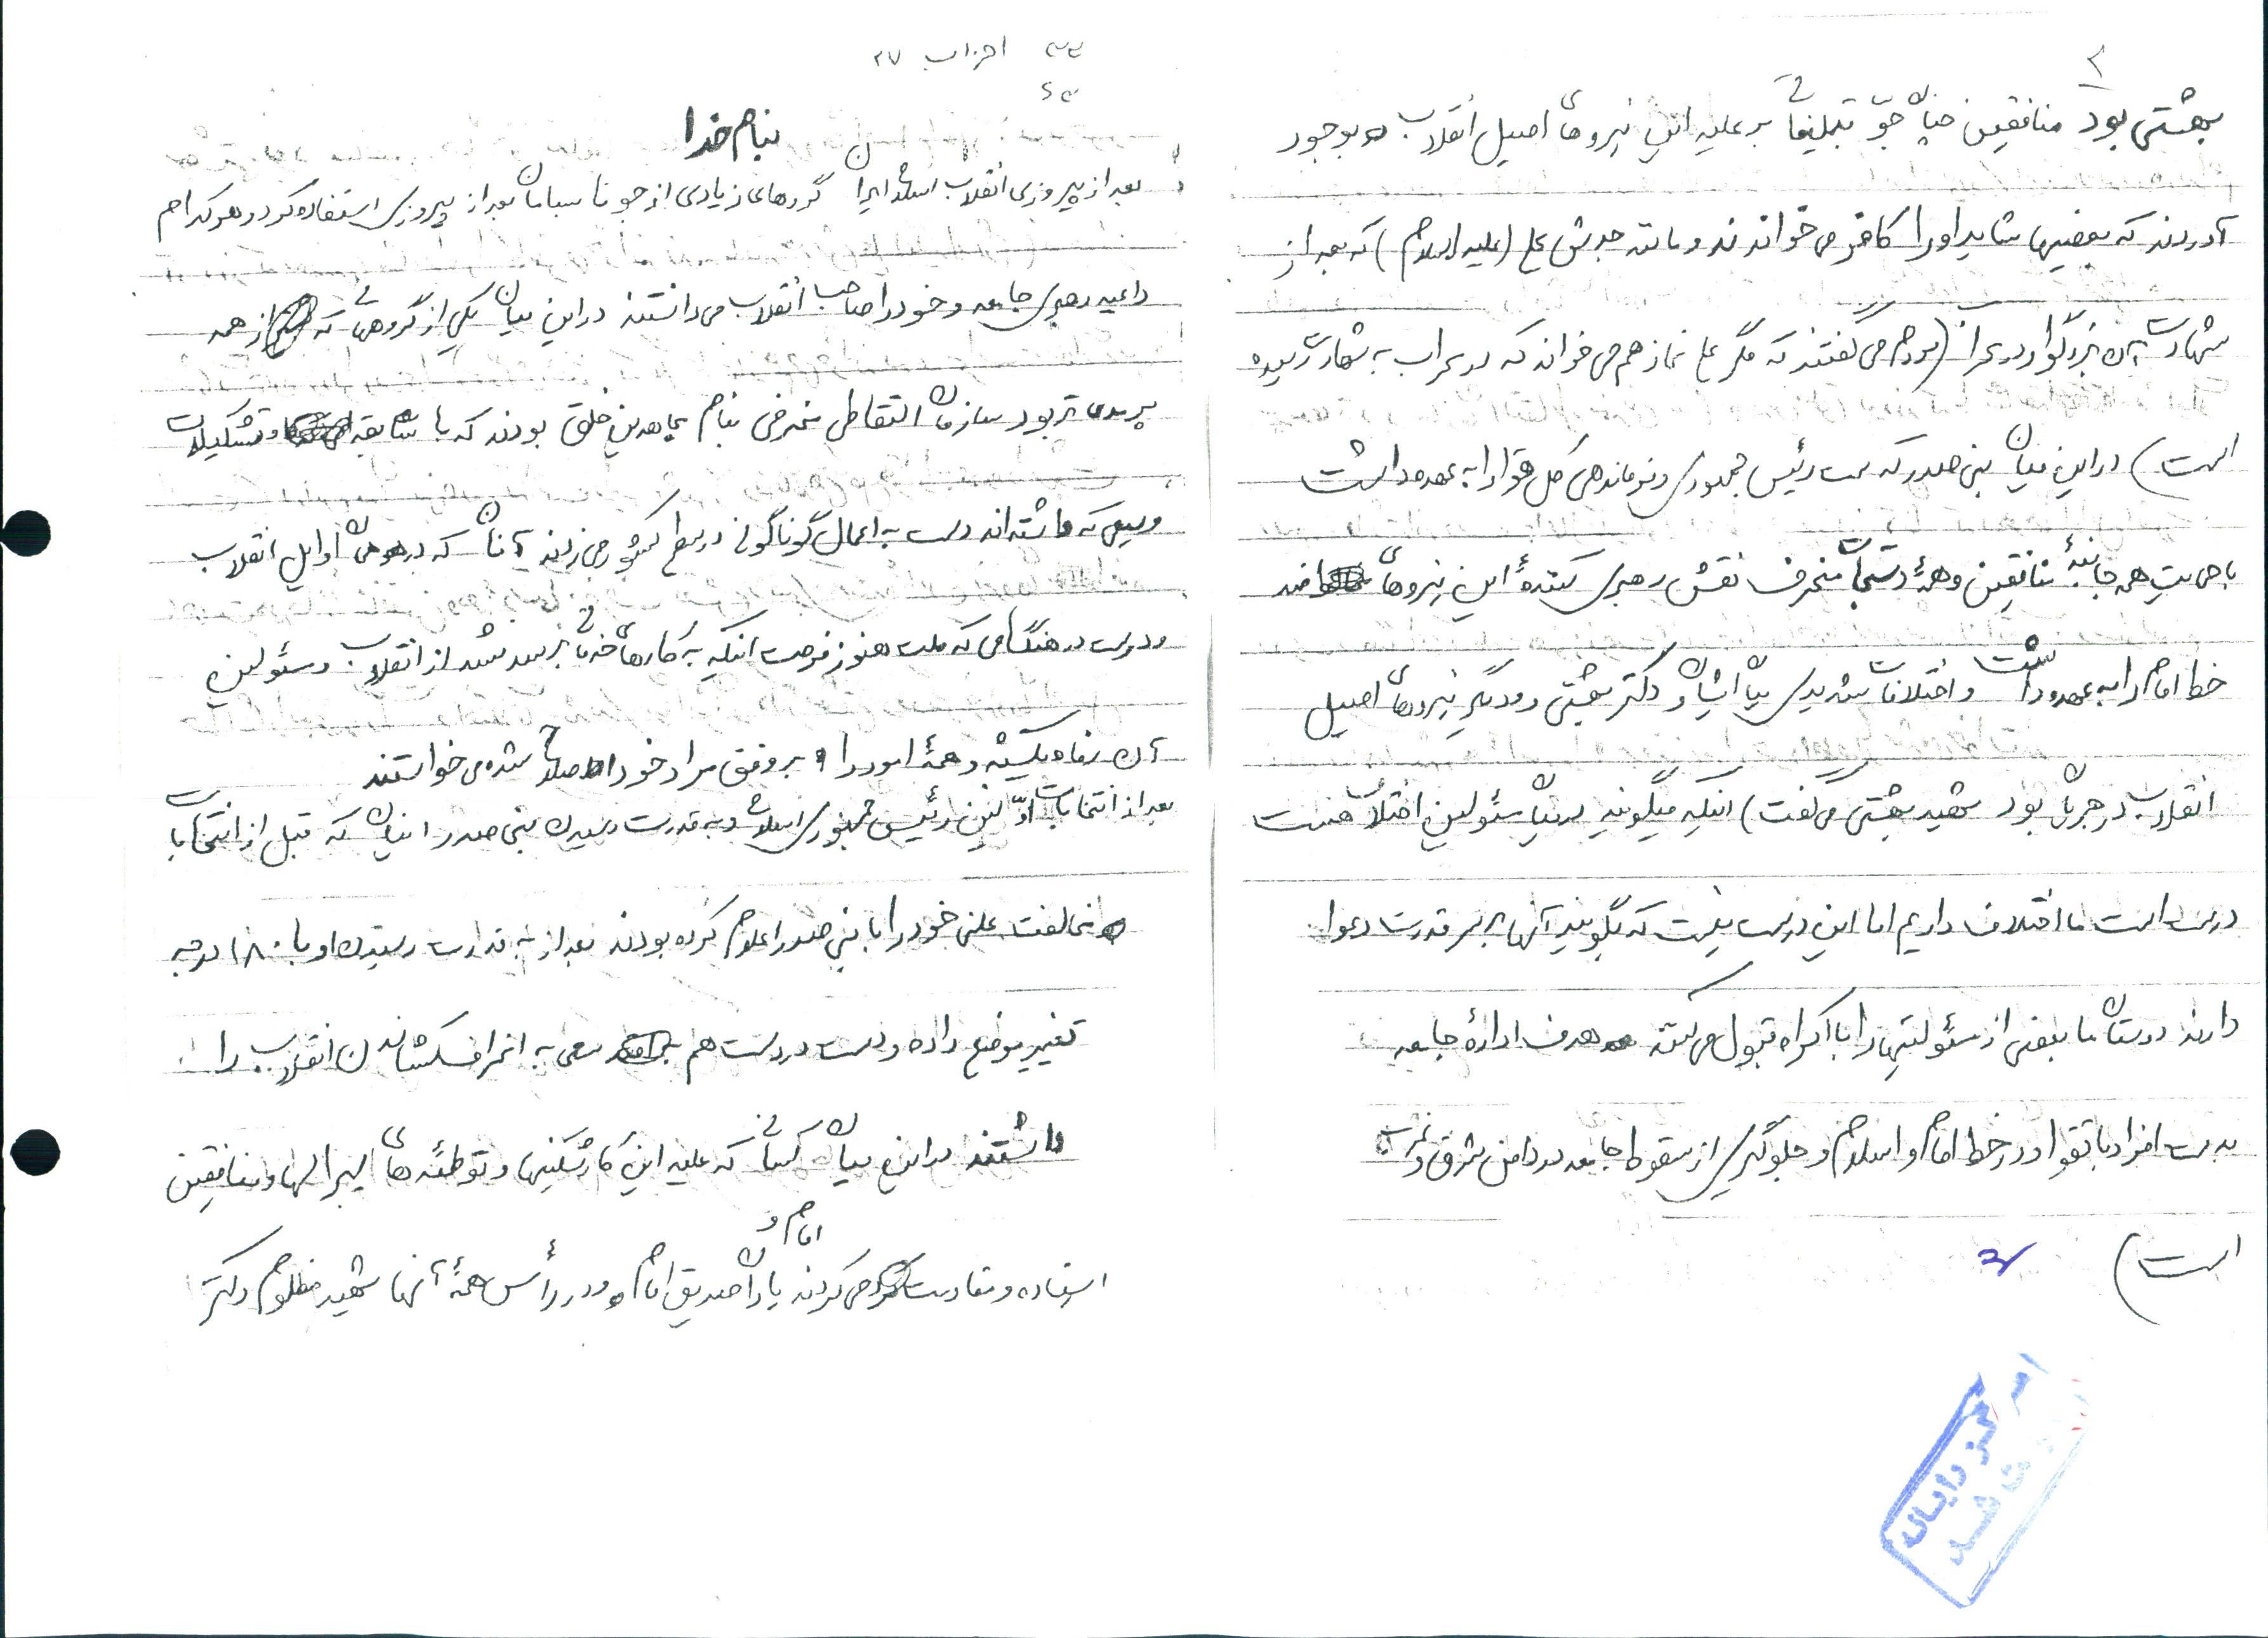 احزاب ۲۷
بنام خدا
بعد از پیروزی انقلاب اسلامی ایران گروهای زیادی از جو نابسامان بعد از پیروزی استفاده کرد و هر کدام
داعیه رهبری جامعه و خود را صاحب انقلاب می دانستند در این میان یکی از گروهائی که از همه
پر مدعی تر بود سازمان التقاطی منحرفی بنام مجاهدین خلق بودند که با سابقه و تشکیلات
وسیعی که داشته اند دست به اعمال گوناگونی در سطح کشور می زدند آنان که در همان اوایل انقلاب
و درست در هنگامی که ملت هنوز فرصت اینکه به کارهای خود برسد نشد از انقلاب و مسئولین
آن بکشند و همۀ امور را بر وفق مراد خود اصلاح شده می خواستند
بعد از انتخابات اولین رئیس جمهوری اسلامی و به قدرت رسیدن بنی صدر اینان که قبل از انتخابات
مخالفت علنی خود را با بنی صدر اعلام کرده بودند بعد از به قدرت رسیدن او با ۱۸۰ درجه
تغییر موضع داده و دست در دست هم سعی به انحراف کشاندن انقلاب را
داشتند در این میان کسانی که علیه این کارشکنیها و توطئه های لیبرالها و منافقین
امام و
ایستاده و مقاومت می کردند یاران صدیق امام و در رأس همۀ آنها شهید مظلوم دکتر
۲
بهشتی بود منافقین چنان جوّ تبلیغاتی بر علیه این نیروهای اصیل انقلاب بوجود
آوردند که بعضیها شاید او را کافر می خواندند و مانند جدش علی (علیه السلام) که بعد از
شهادت آن بزرگوار در محراب (مردم می گفتند که مگر علی نماز هم می خواند که در محراب به شهادت رسیده
است) در این میان بنی صدر که سمت رئیس جمهوری و فرماندهی کل قوا را به عهده داشت
با حمایت همه جانبۀ منافقین و همۀ دستجات منحرف نقش رهبری کنندۀ این نیروهای ضد
خط امام را به عهده داشت و اختلافات شدیدی میان ایشان و دکتر بهشتی و دیگر نیروهای اصیل
انقلاب در جریان بود شهید بهشتی می گفت) اینکه میگویند در میان مسئولین اختلاف هست
درست است ما اختلاف داریم اما این درست نیست که بگویند آنها بر سر قدرت دعوا
دارند دوستان ما بعضی از مسئولیتها را با اکراه قبول می کنند هدف ادارۀ جامعه
بدست افراد با تقوا و در خط امام و اسلام و جلوگیری از سقوط جامعه در دامن شرق و غرب
است)
شد